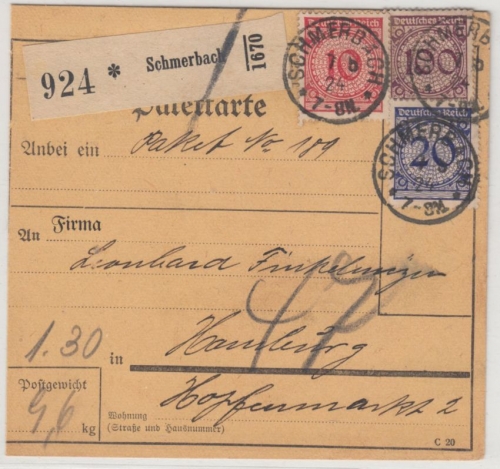 924 * Schmerbach 1670
Deutsches Reich
10
Deutsches Reich
100
SCHMERBACH
24
7-8N
Deutsches Reich
20
SCHMERBACH
7-8N
Paketkarte
Anbei ein Paket No 189
An Firma
Leonhard Finkelmeyer
47
1.30
in Hamburg
Postgewicht
9,6 kg
Hopfenmarkt 2
Wohnung
(Straße und Hausnummer)
C 20